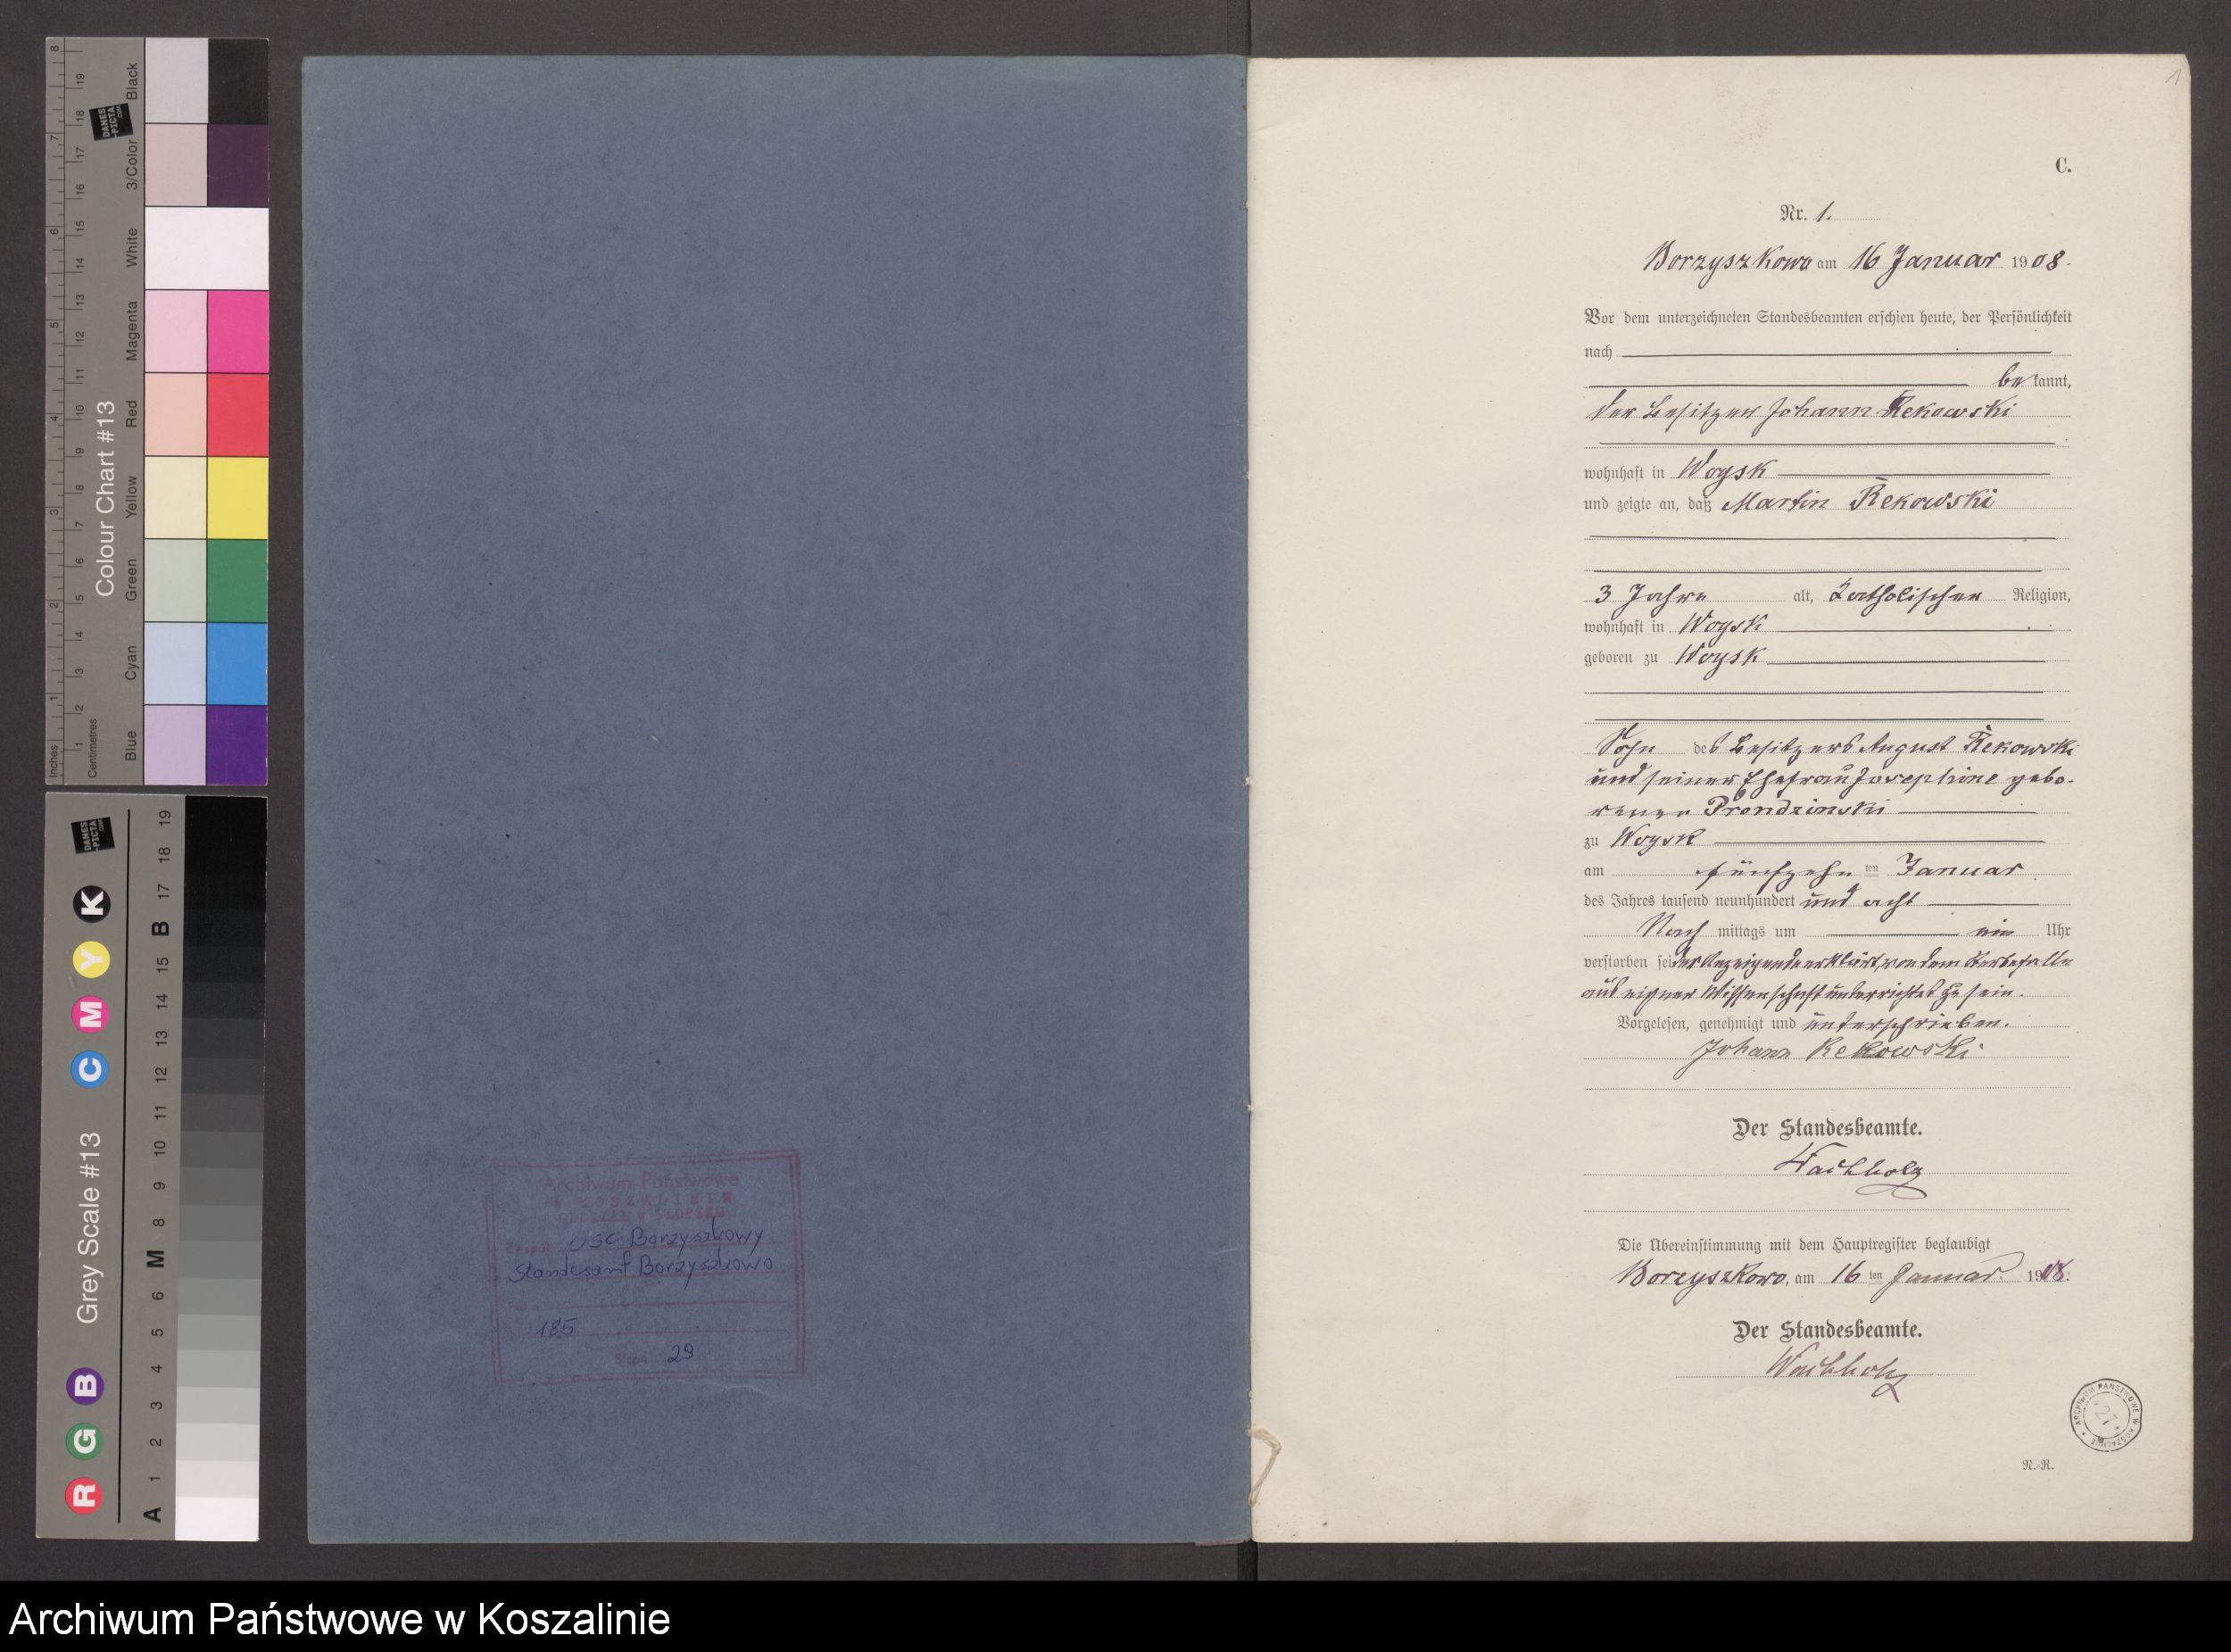 Colour Chart #13
Inches
Centimetres
Blue
Cyan
Green
Yellow
Red
Magenta
White
3/Color
Black
DANES
-PICTA
.COM
Grey Scale #13
R G B C M Y K
A 1 2 3 4 5 6 M 8 9 10 11 12 13 14 15 B 17 18 19
DANES
-PICTA
.COM
Archiwum Państwowe
w KOSZALINIE
USC Borzyszkowy
Standesamt Borzyszkowo
185
29
1
C.
Nr. 1.
Borzyszkowo am 16 Januar 1908.
Vor dem unterzeichneten Standesbeamten erschien heute, der Persönlichkeit
nach
be kannt,
der Besitzer Johann Rekowski
wohnhaft in Woysk
und zeigte an, daß Martin Rekowski
3 Jahre alt, katholischer Religion,
wohnhaft in Woysk
geboren zu Woysk
Sohn des Besitzers August Rekowski
und seiner Ehefrau Josephine gebo-
renen Prondzinski
zu Woysk
am fünfzehn ten Januar
des Jahres tausend neunhundert und acht
Nach mittags um ein Uhr
verstorben sei der Anzeigende erklärt, von dem Sterbefalle
aus eigner Wissenschaft unterrichtet zu sein.
Vorgelesen, genehmigt und unterschrieben.
Johann Rekowski
Der Standesbeamte.
Wachholz
Die Übereinstimmung mit dem Hauptregister beglaubigt
Borzyszkowo, am 16 ten Januar 1908.
Der Standesbeamte.
Wachholz
ARCHIWUM PAŃSTWOWE W KOSZALINIE
27
N.-R.
Archiwum Państwowe w Koszalinie